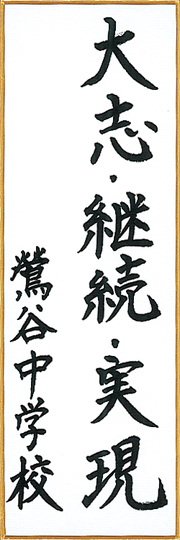 大志・継続・実現
鶯谷中学校